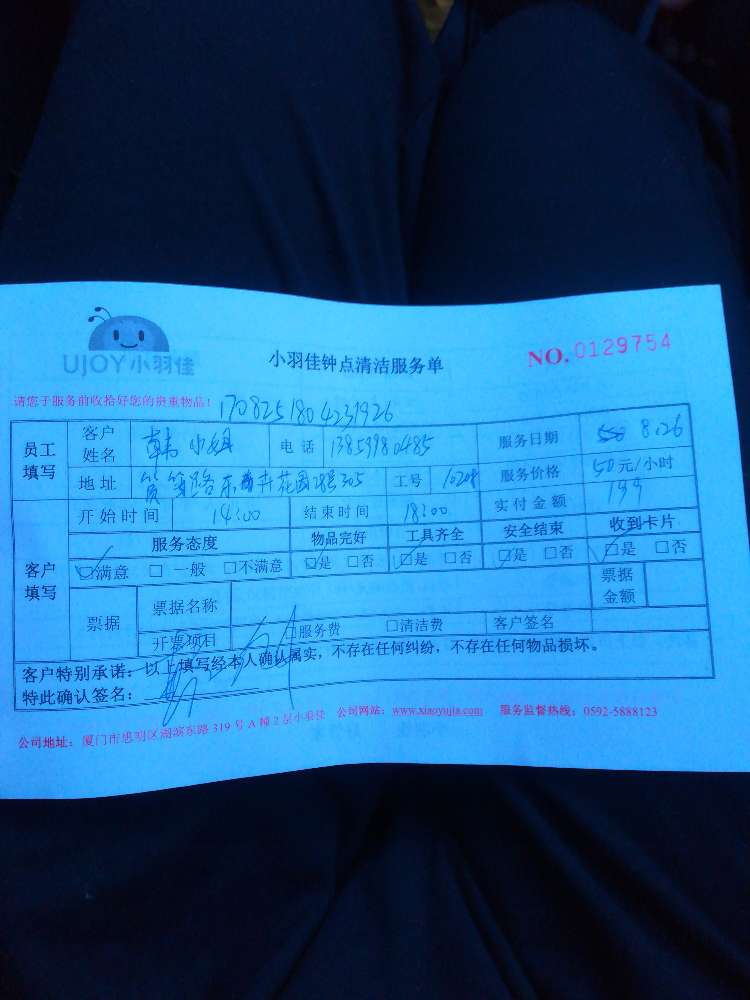 UJOY小羽佳
小羽佳钟点清洁服务单
NO.0129754
请您于服务前收拾好您的贵重物品!
1708251804231926
员工填写 客户姓名 韩小姐 电话 13859980485 服务日期 8.26
地址 筼筜路东 花园28号305 工号 10208 服务价格 50元/小时
客户填写 开始时间 14:00 结束时间 18:00 实付金额 199
服务态度 物品完好 工具齐全 安全结束 收到卡片
☑满意 □一般 □不满意 ☑是 □否 ☑是 □否 ☑是 □否 ☑是 □否
票据 票据名称 票据金额
开票项目 □服务费 □清洁费 客户签名
客户特别承诺:以上填写经本人确认属实,不存在任何纠纷,不存在任何物品损坏。
特此确认签名:
公司地址:厦门市思明区湖滨东路319号A幢2层小羽佳 公司网站:www.xiaoyujia.com 服务监督热线:0592-5888123